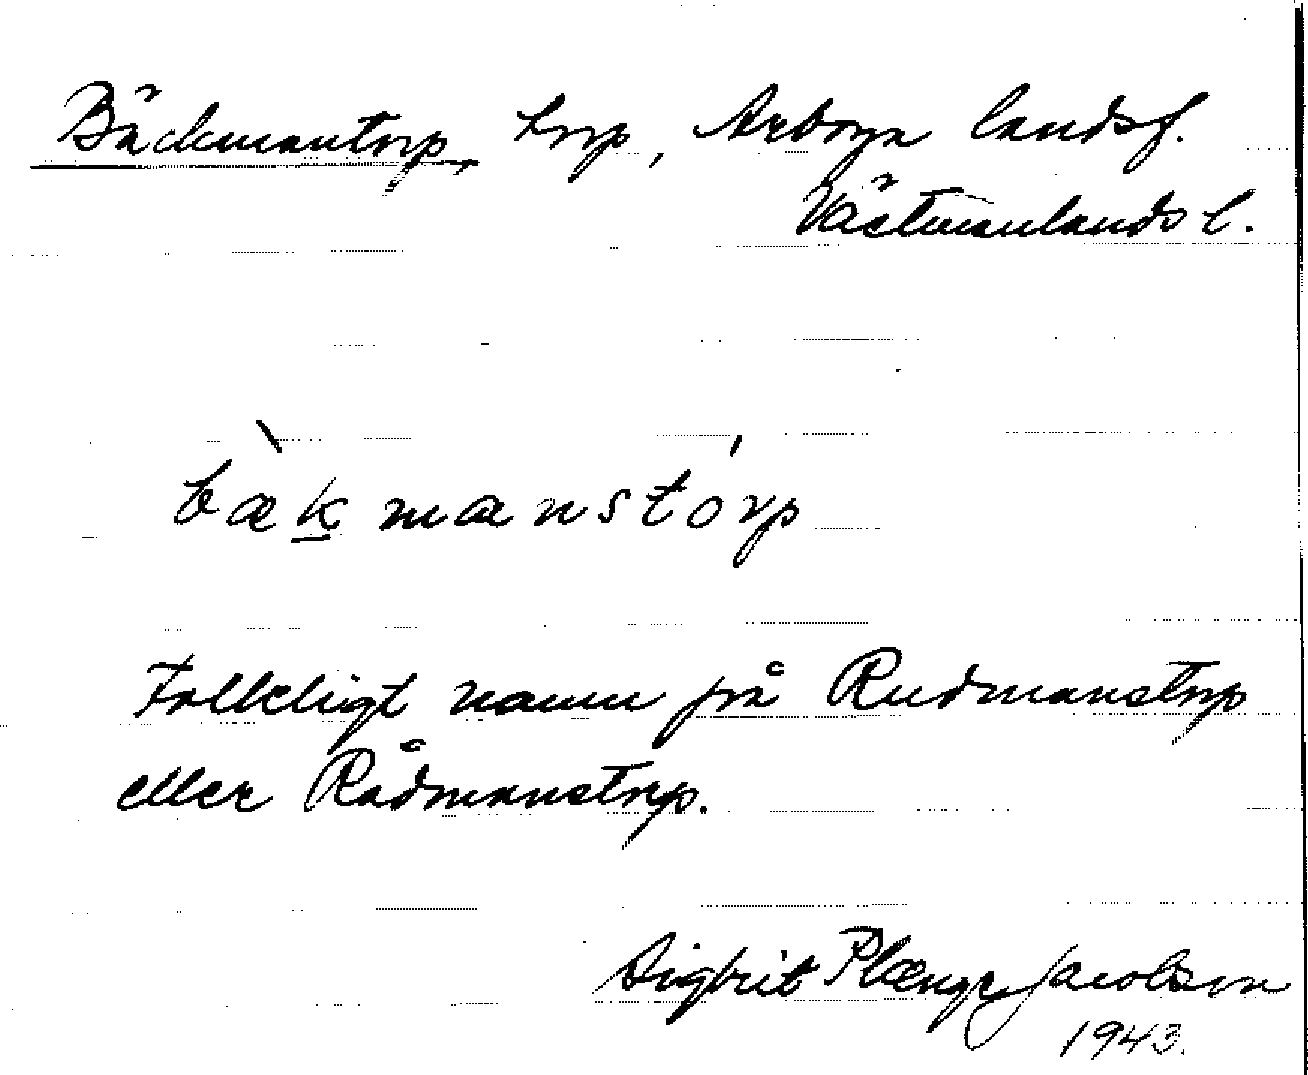 Bäckmantorp, torp, Arboga landsf.
Västmanlands l.
bæ̀k̲manstórp
Folkligt namn på Rudmanstorp
eller Rådmanstorp.
Sigbrit Plænge Jacobson
1943.